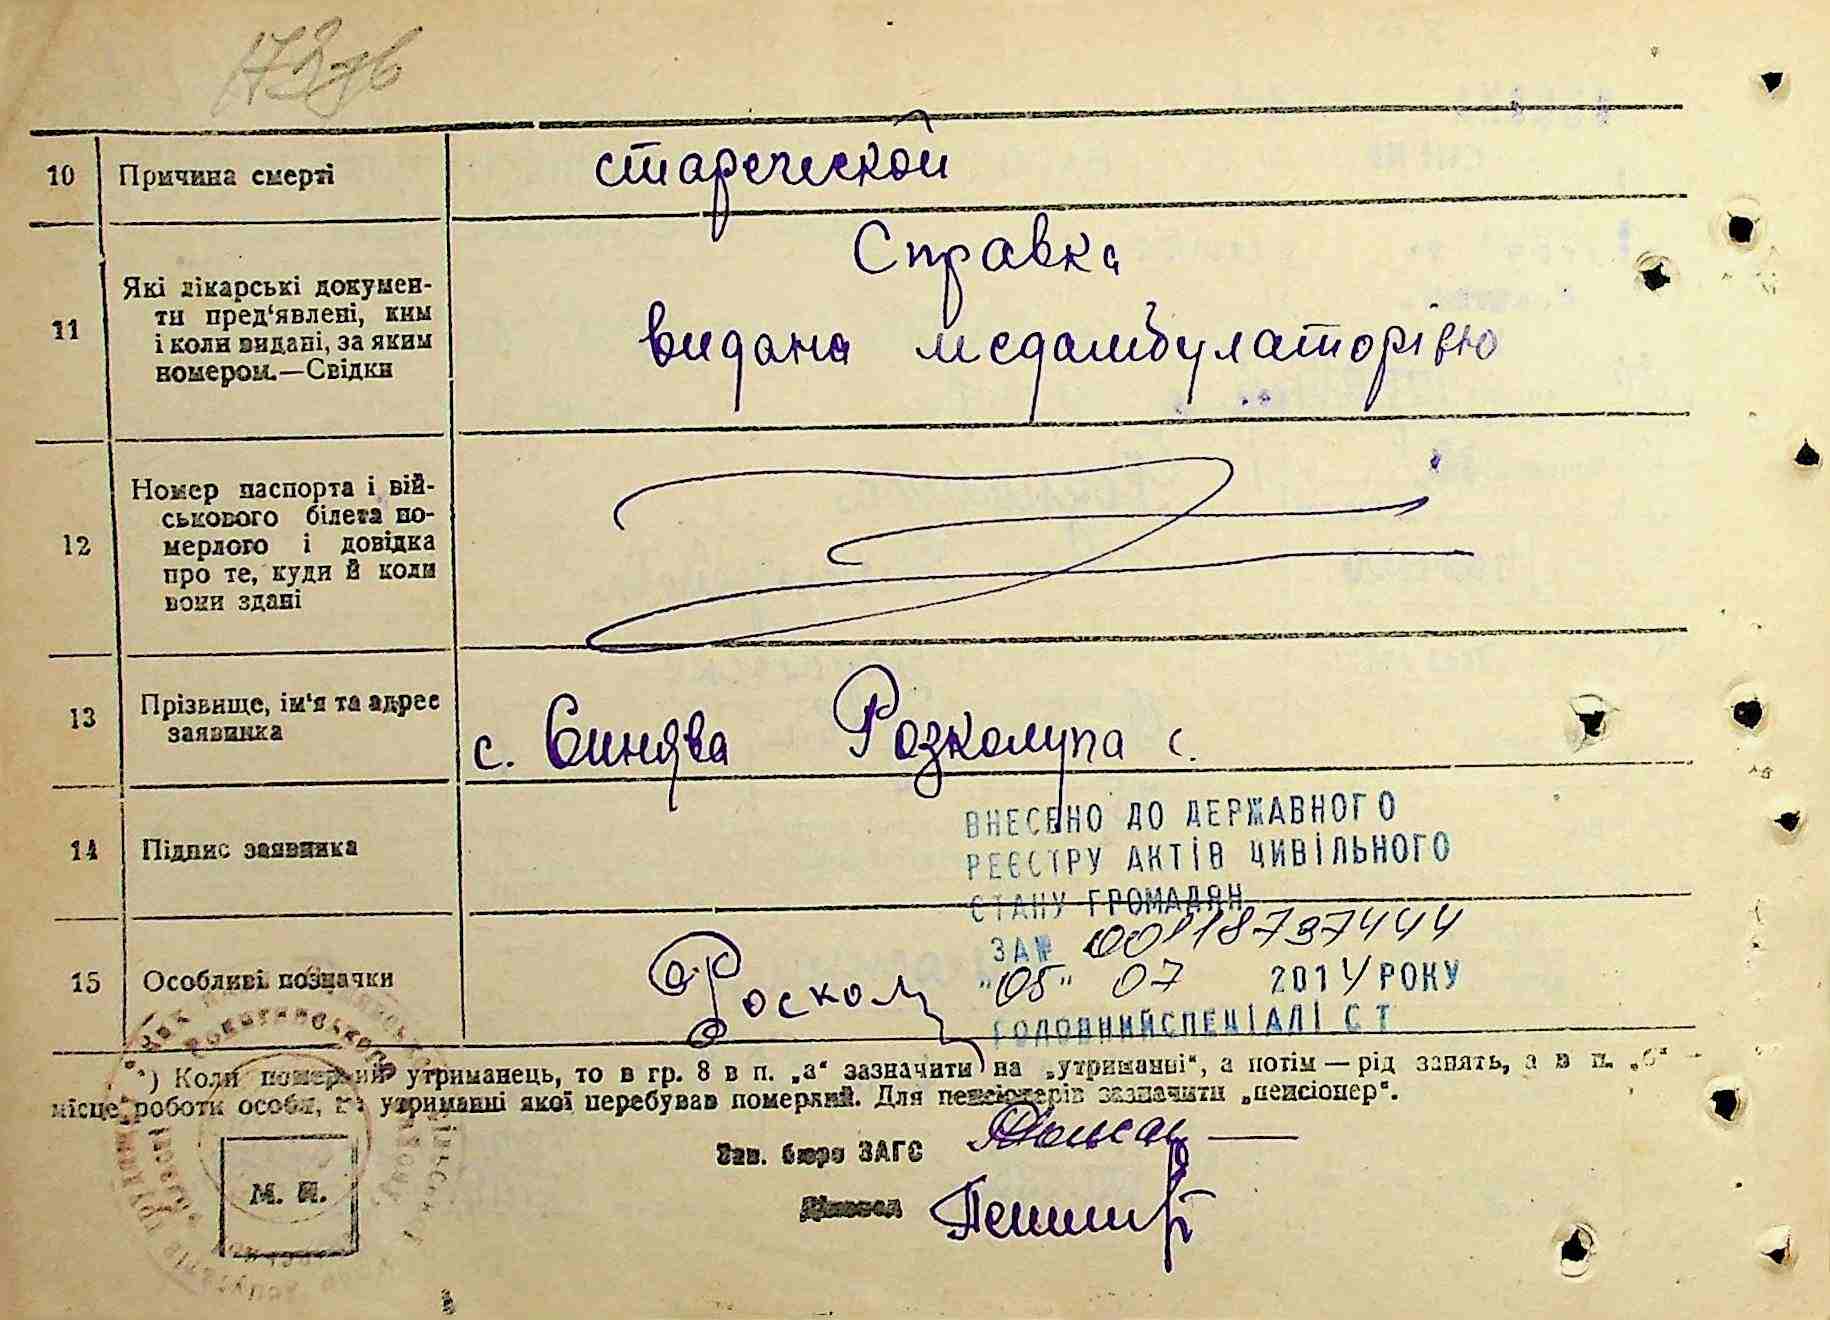 10 Причина смерті старческой
11 Які лікарські докумен-
ти пред'явлені, ким
і коли видані, за яким
номером.—Свідки
Справка
видана медамбулаторією
12 Номер паспорта і вій-
ськового білета по-
мерлого і довідка
про те, куди й коли
вони здані
13 Прізвище, ім'я та адрес
заявника
с. Синява Розколупа с.
14 Підпис заявника
ВНЕСЕНО ДО ДЕРЖАВНОГО
РЕЄСТРУ АКТІВ ЦИВІЛЬНОГО
СТАНУ ГРОМАДЯН
ЗА № 00118737444
"05" 07 2014 РОКУ
ГОЛОВНИЙ СПЕЦІАЛІСТ
15 Особливі позначки
Роскол
*) Коли померлий утриманець, то в гр. 8 в п. „а" зазначити на „утриманні", а потім — рід занять, а в п. „б" —
місце роботи особи, на утриманні якої перебував померлий. Для пенсіонерів зазначити „пенсіонер".
Зав. бюро ЗАГС
Діловод
М. П.